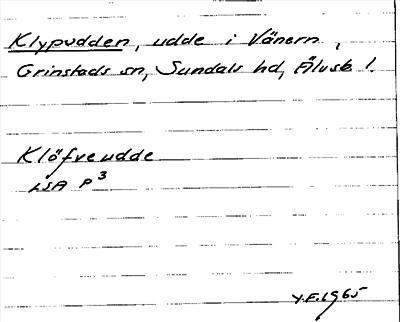 Klypudden, udde i Vänern,
Grinstads sn, Sundals hd, Älvsb l.
Klöfveudde
LSA P³
Y.F. 1965